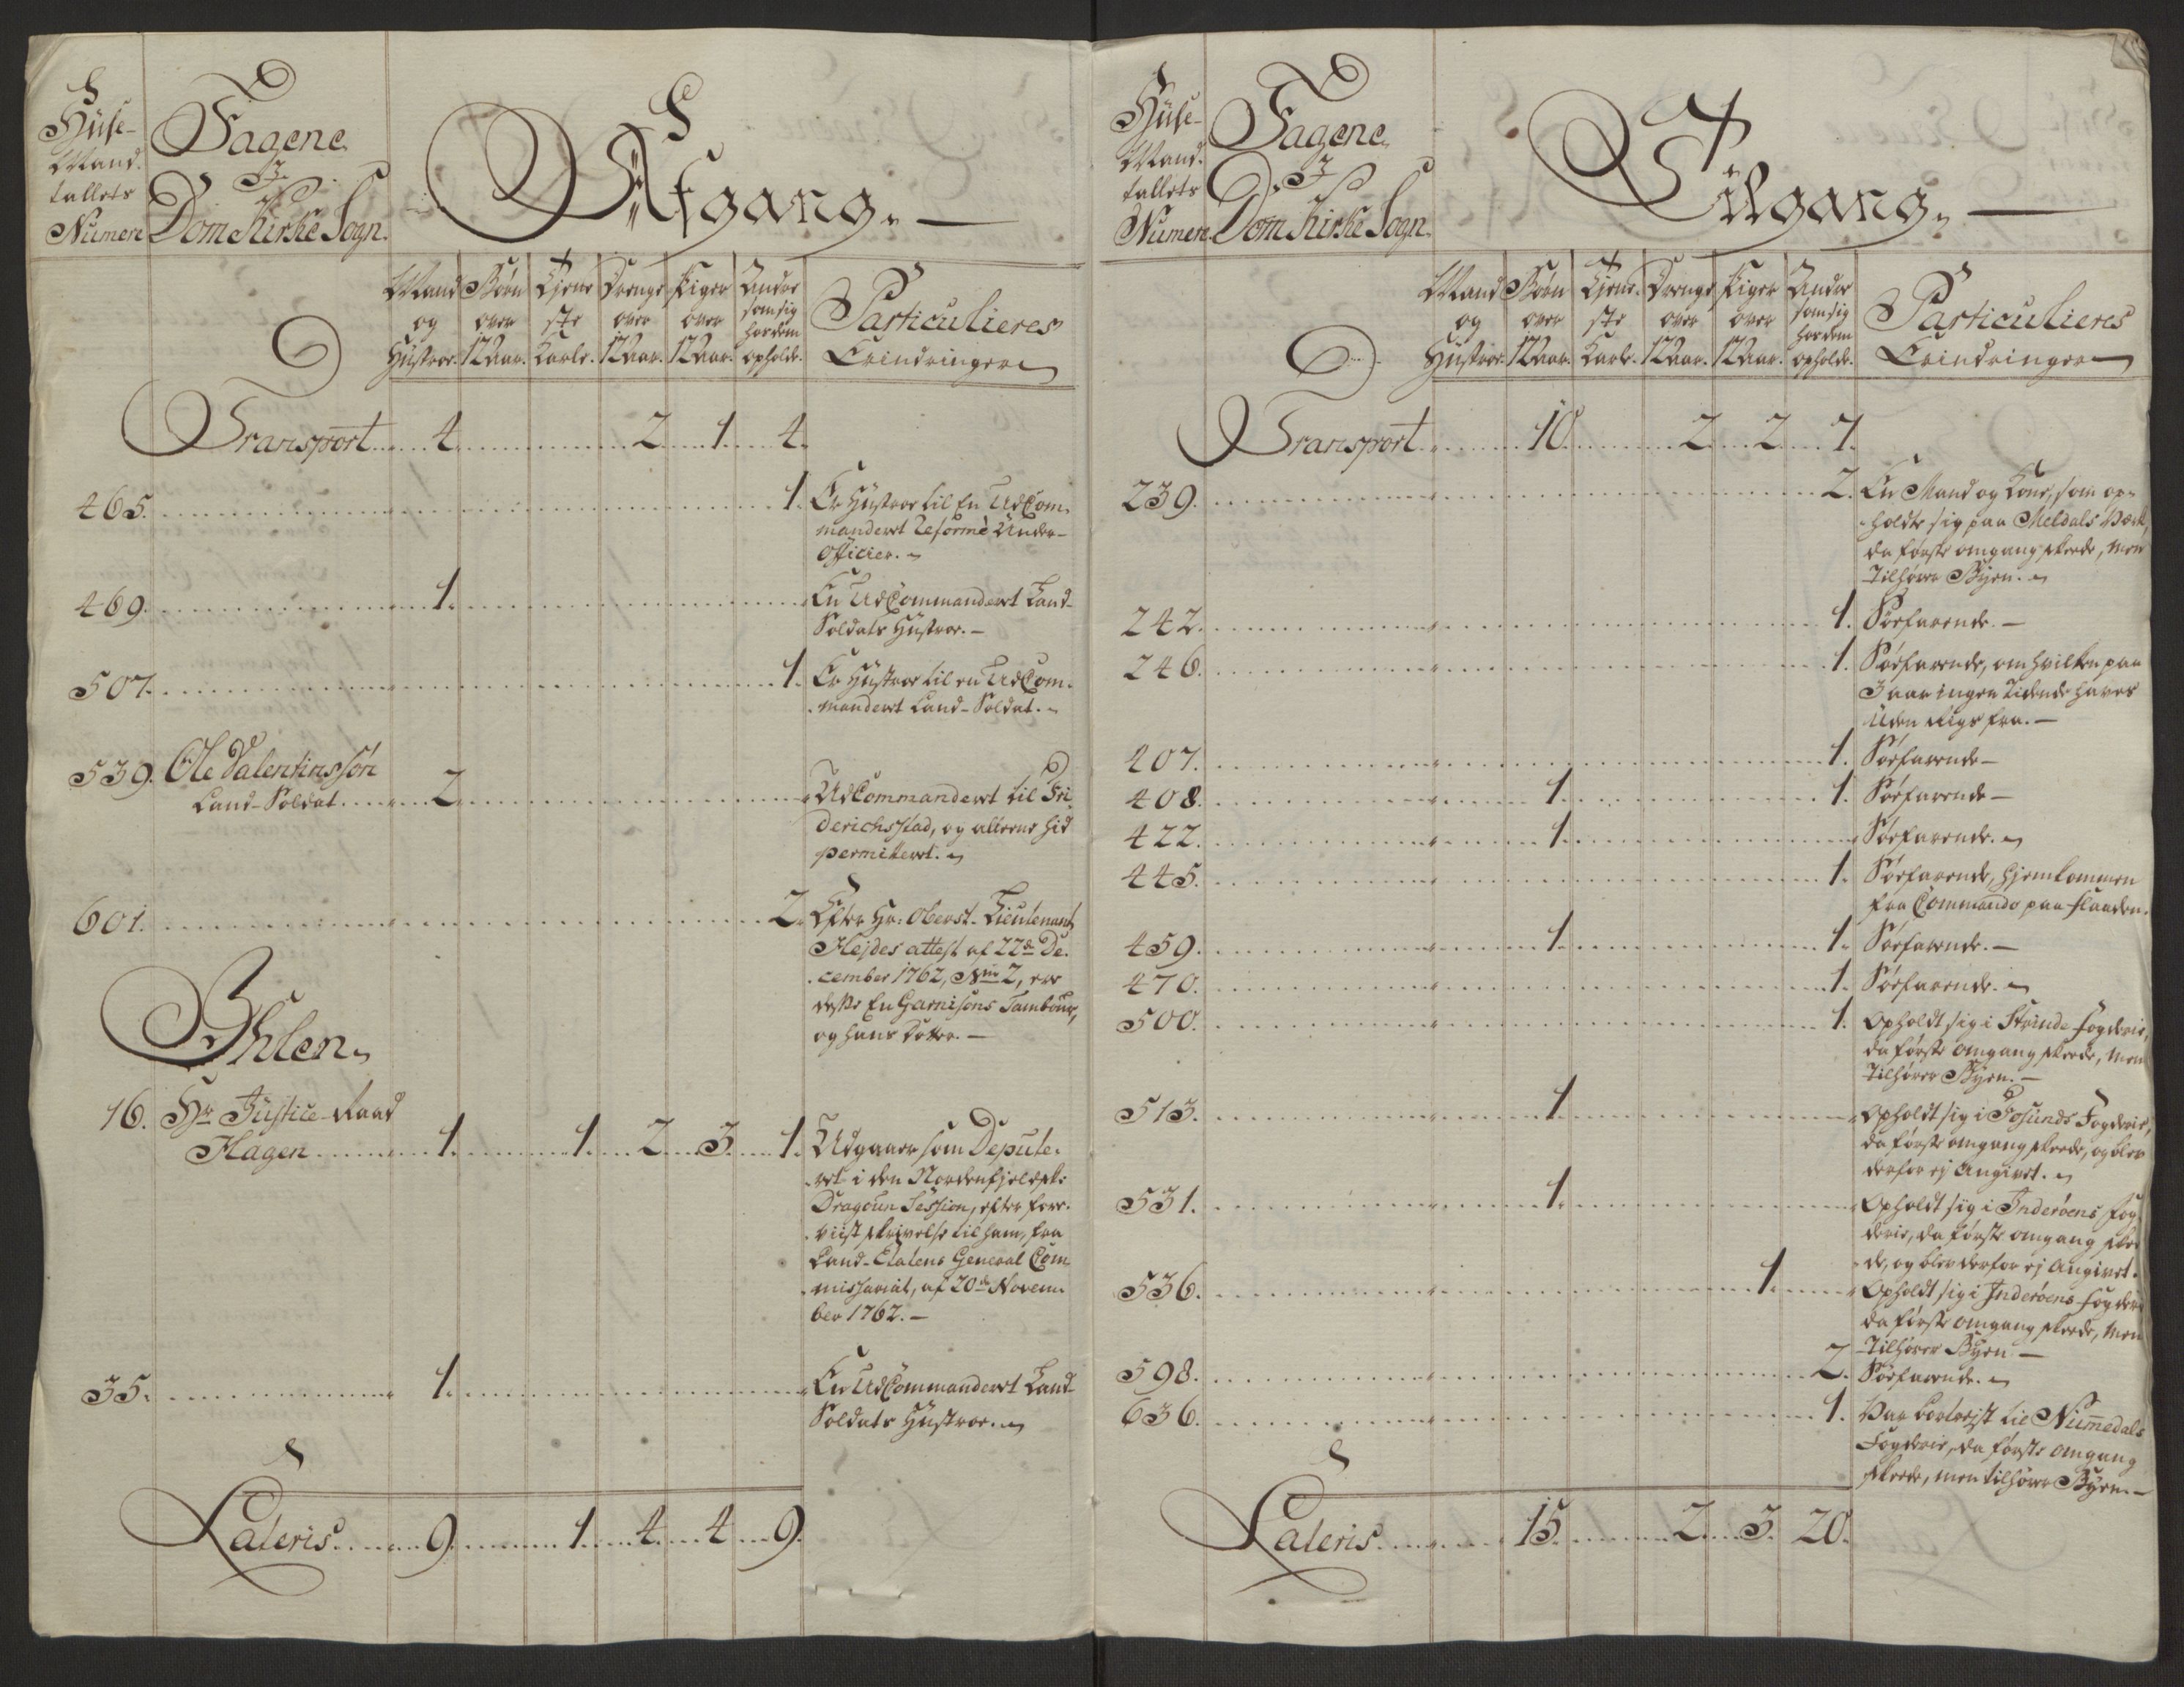 Huse-
Mand-
tallets
Numere
Fagene
I
Dom Kirke Sogn.
Afgang.
Mand og Hustroe.
Børn over 12 Aar.
Tjene ste Karle.
Drenge over 12 Aar.
Piger over 12 Aar.
Andre som sig hos dem opholde.
Particulieres
Erindringer
Transport 4. 2. 1. 4.
465. 1. Er Hustroe til En UdCom-
manderet Reformé Under-
Officier.
469. 1. En UdCommanderet Land-
Soldats Hustroe.
507. 1. Er Hustroe til en UdCom-
manderet Land-Soldat.
539. Ole Valentinssön
Land-Soldat 2. UdCommanderet til Fri-
derichsstad, og allene hid
permitteret.
601. 2. Efter Hr: Oberst-Lieutenant
Hejdes attest af 22de De-
cember 1762, No 2, er
disse En Garnisons Tambour,
og hans Dotter.
Ihlen.
16. Hr Justice-Raad
Hagen 1. 1. 2. 3. 1. Udgaaer som Depute-
ret i den Nordenfjeldske
Dragoun Session, efter fore-
viist skrivelse til ham, fra
Land-Etatens General Com-
missariat, af 20de Novem-
ber 1762.
35. 1. En UdCommanderet Land-
Soldats Hustroe.
Lateris 9. 1. 4. 4. 9.
Huse-
Mand-
tallets
Numere
Fagene
I
Dom Kirke Sogn.
Tilgang.
Mand og Hustroe.
Børn over 12 Aar.
Tjene- ste Karle.
Drenge over 12 Aar.
Piger over 12 Aar.
Andre som sig hos dem opholde.
Particulieres
Erindringer
Transport 10. 2. 2. 7.
239. 2. En Mand og Kone, som op-
holdte sig paa Meldals Værk,
da første omgang skeede, men
Tilhører Byen.
242. 1. Søefarende.
246. 1. Søefarende, om hvilken paa
3 aar ingen Tidende haves
Uden Rigs fra.
407. 1. Søefarende
408. 1. 1. Søefarende
422. 1. Søefarende.
445. 1. Søefarende, hjemkommen
fra Commando paa flaaden.
459. 1. 1. Søefarende.
470. 1. Søefarende.
500. 1. Opholdt sig i Strinde fogderie,
da første omgang skeede, men
Tilhører Byen.
513. 1. Opholdt sig i Fosunds Fogderie,
da første omgang skeede, og blev
derfor ej Angivet.
531. 1. Opholdt sig i Inderøens Fog-
derie, da første omgang skee-
de, og blev derfor ej Angivet.
536. 1. Opholdt sig i Inderøens fogderie
da første omgang skeede, men
Tilhører Byen.
598. 2. Søefarende.
636. 1. Var bortrejst til Numedals
Fogderie, da første omgang
skeede, men tilhører Byen.
Lateris 15. 2. 3. 20.